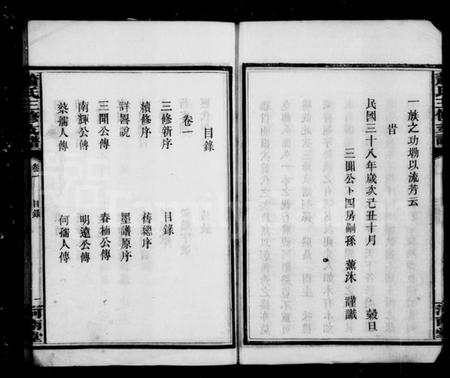 一族之功勒以流芳云
旹
民國三十八年歲次己丑十月 穀旦
三開公下四房嗣孫 薰沐 謹識
目錄
卷一
三修新序 目錄
續修序
詳畧說 墨譜原序
三開公傳 春楠公傳
南輝公傳 明遠公傳
蔡孺人傳 何孺人傳
卷一
目錄
一
河南堂